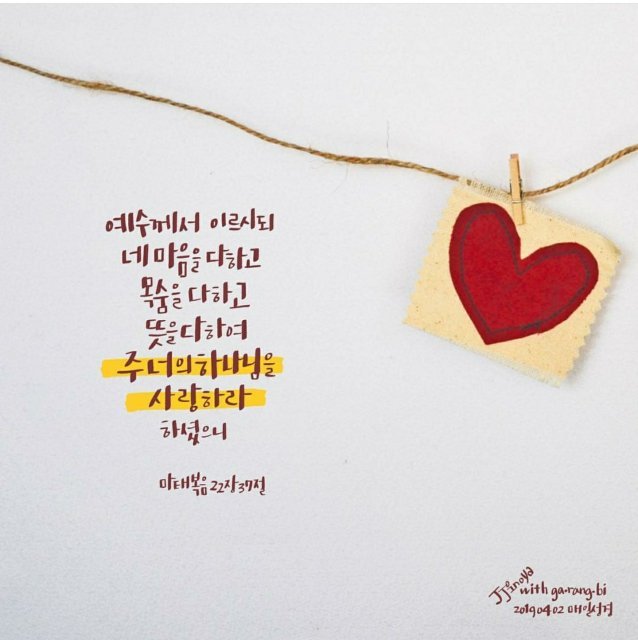 예수께서 이르시되
네 마음을 다하고
목숨을 다하고
뜻을 다하여
주 너의 하나님을
사랑하라
하셨으니
마태복음 22장 37절
with ga.rang.bi
20190402 매일성경